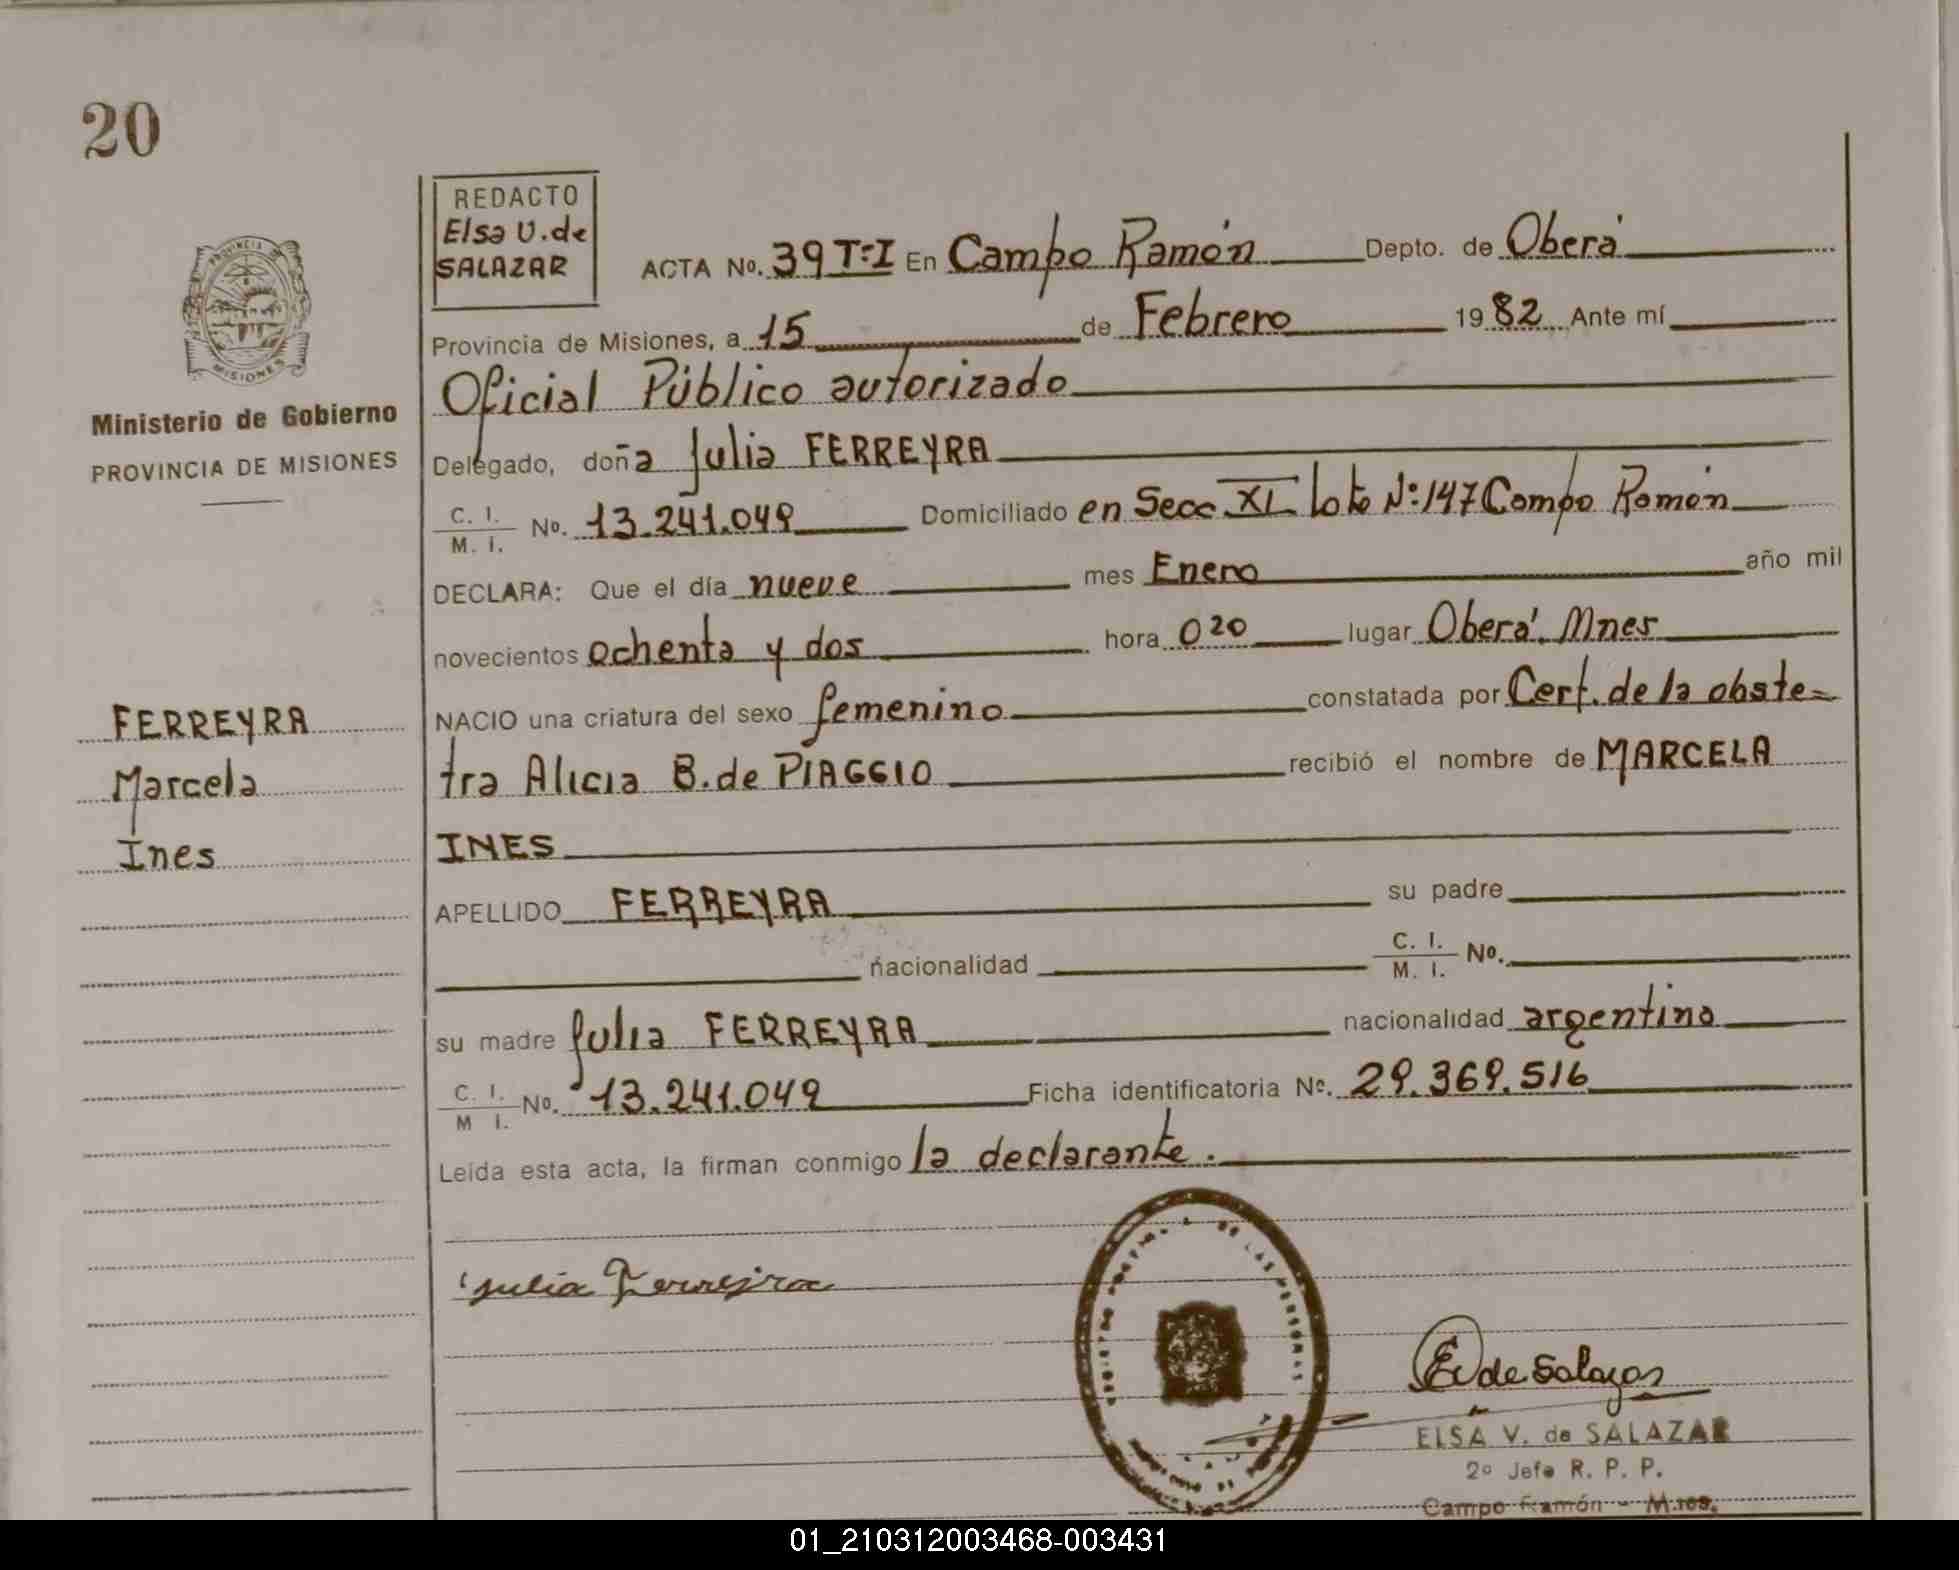 20
REDACTO
Elsa V. de
SALAZAR
PROVINCIA
MISIONES
Ministerio de Gobierno
PROVINCIA DE MISIONES
FERREYRA
Marcela
Ines
ACTA No. 39 T:I En Campo Ramón Depto. de Oberá
Provincia de Misiones, a 15 de Febrero 1982 Ante mí
Oficial Público autorizado
Delegado, doña Julia FERREYRA
C. I. / M. I. No. 13.241.049 Domiciliado en Secc XI Lote Nº:147 Campo Ramón
DECLARA: Que el día nueve mes Enero año mil
novecientos ochenta y dos hora 0 20 lugar Oberá. Mnes
NACIO una criatura del sexo femenino constatada por Cert. de la obste=
tra Alicia B. de PIAGGIO recibió el nombre de MARCELA
INES
APELLIDO FERREYRA su padre
nacionalidad C. I. / M. I. No.
su madre Julia FERREYRA nacionalidad argentina
C. I. / M I. No. 13.241.049 Ficha identificatoria Nº. 29.369.516
Leída esta acta, la firman conmigo la declarante.
Julia Ferreira
DE LAS PERSONAS
E V de Salazar
ELSA V. de SALAZAR
2º Jefe R. P. P.
Campo Ramón - Mnes.
01_210312003468-003431